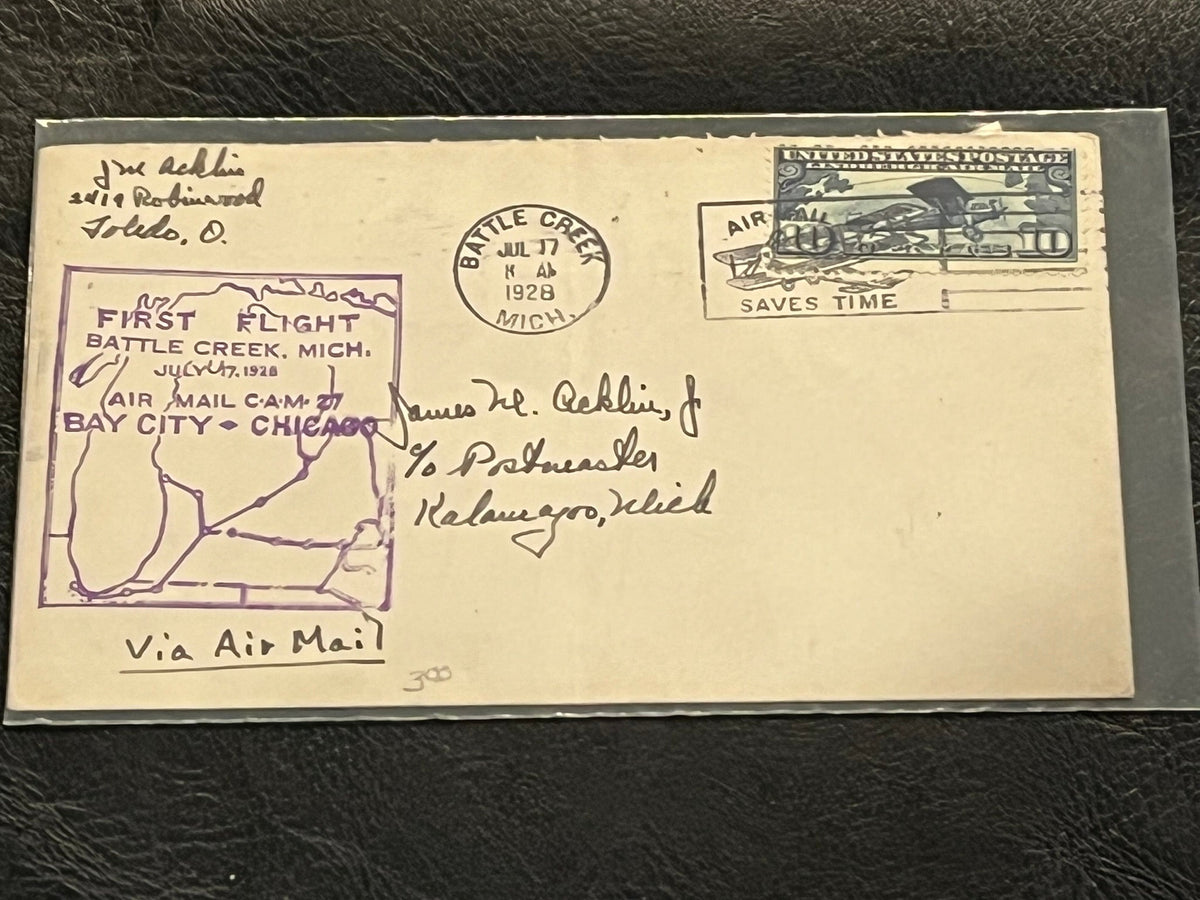 J M Acklin
2419 Robinwood
Toledo, O.
BATTLE CREEK
JUL 17
8 AM
1928
MICH.
AIR MAIL
SAVES TIME
UNITED STATES POSTAGE
LINDBERGH AIR MAIL
10 10
FIRST FLIGHT
BATTLE CREEK, MICH.
JULY 17, 1928
AIR MAIL C·A·M· 27
BAY CITY ◆ CHICAGO
James M. Acklin, Jr
c/o Postmaster
Kalamazoo, Mich
Via Air Mail
3⁰⁰